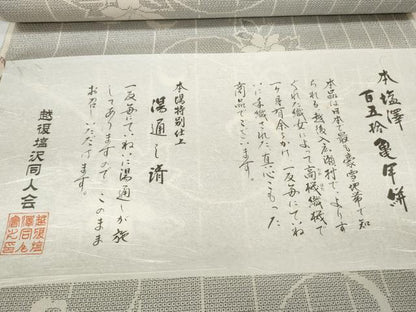 本塩澤
百五拾亀甲絣
本品は日本で最も豪雪地帯で知
られる越後入広瀬村で、より す
ぐれた織女によって高機織機で
一ヶ月有余をかけ一反毎にていね
いに手織された、真心こもった
商品でございます。
本場特別仕上
湯通し済
一反毎にていねいに湯通しが施
してありますので、このまま
お召しいただけます。
越後塩沢同人会
越後塩
澤同人
會之印